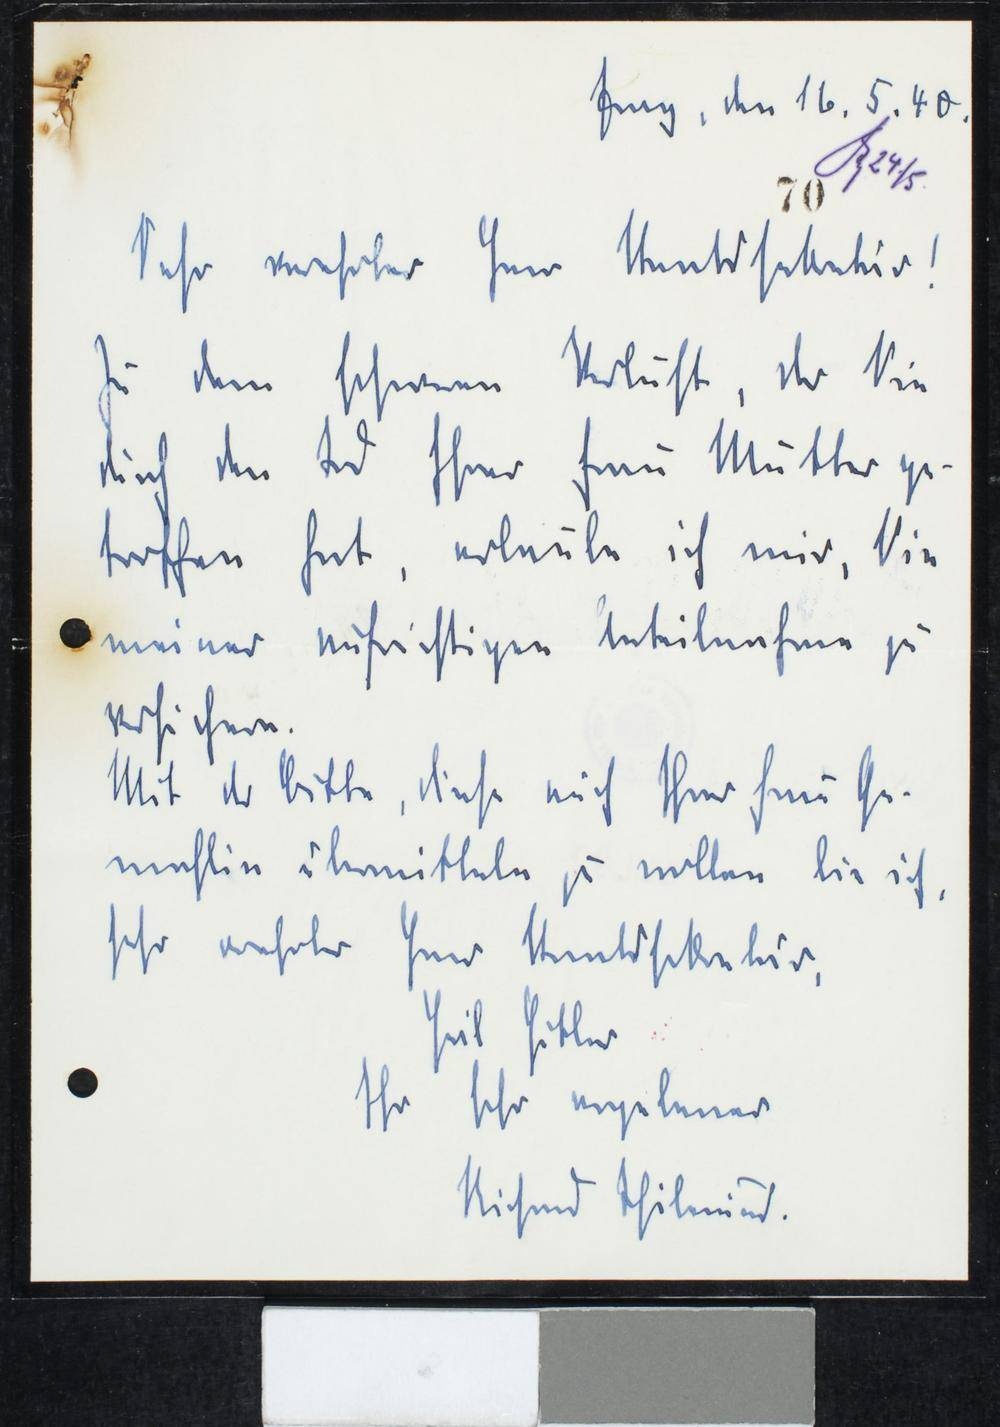 Prag, den 16. 5. 40.
24/5.
70
Sehr verehrter Herr Staatssekretär!
Zu dem schweren Verluste, der Sie
durch den Tod Ihrer Frau Mutter ge-
troffen hat, erlaube ich mir, Sie
meiner aufrichtigen Anteilnahme zu
versichern.
Mit der Bitte, diese auch Ihrer Frau Ge-
mahlin übermitteln zu wollen bin ich,
sehr verehrter Herr Staatssekretär,
Heil Hitler
Ihr sehr ergebener
Richard